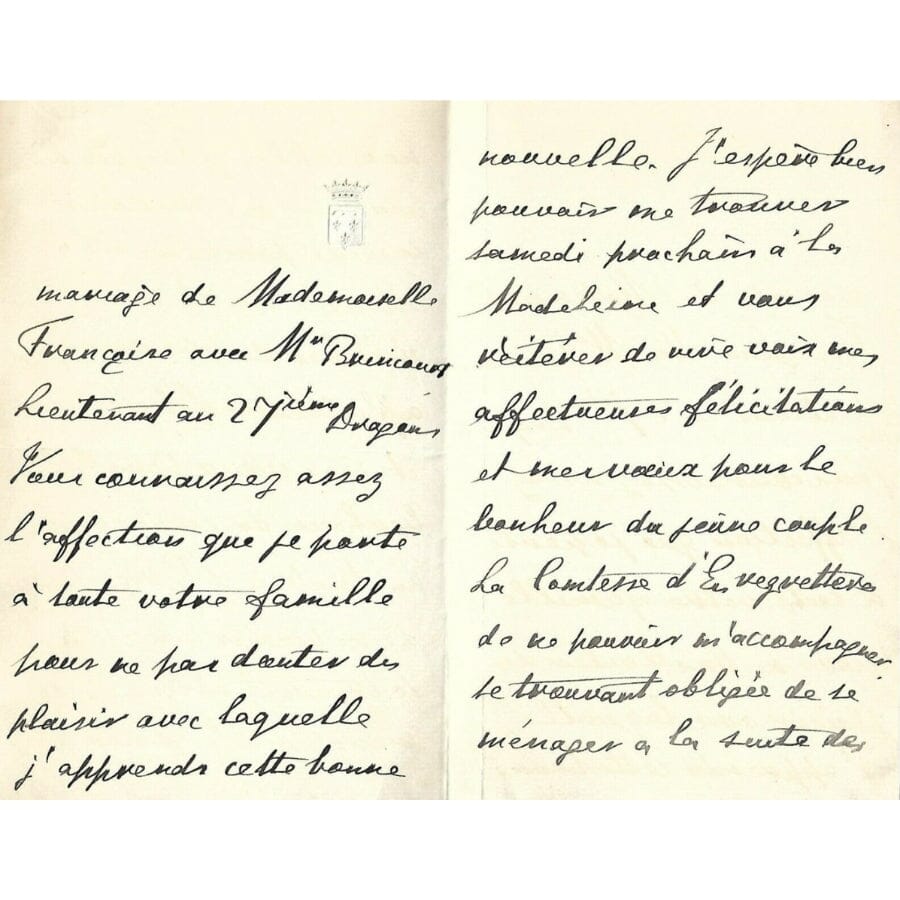 mariage de Mademoiselle
Françoise avec Mr Brincourt
Lieutenant au 27ième Dragons
Vous connaissez assez
l'affection que je porte
à toute votre famille
pour ne pas douter du
plaisir avec laquelle
j'apprends cette bonne
nouvelle. J'espère bien
pouvoir me trouver
samedi prochain à la
Madeleine et vous
réitérer de vive voix mes
affectueuses félicitations
et mes vœux pour le
bonheur du jeune couple
La Comtesse d'Eu regrettera
de ne pouvoir m'accompagner
se trouvant obligée de se
ménager a la suite des